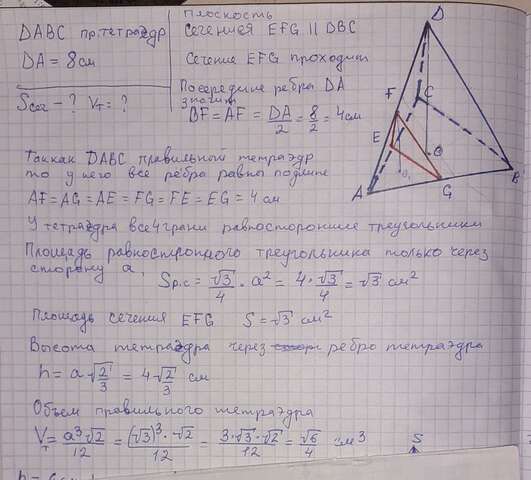 DABC пр. тетраэдр
DA = 8 см
Sсеч - ? Vт = ?
Плоскость
сечения EFG || DBC
Сечение EFG проходит
Посередине ребры DA
значит
DF = AF = DA/2 = 8/2 = 4 см
D
F
C
E
O
O₁
A
G
B
Так как DABC правильный тетраэдр
то у него все ребра равны по длине
AF = AG = AE = FG = FE = EG = 4 см
У тетраэдра все 4 грани равносторонние треугольники
Площадь равностороннего треугольника только через
сторону a,
Sр.с = √3/4 · a² = 4 · √3/4 = √3 см²
Площадь сечения EFG S = √3 см²
Высота тетраэдра через ребро тетраэдра
h = a √2/3 = 4 √2/3 см
Объем правильного тетраэдра
Vт = a³√2/12 = (√3)³ · √2/12 = 3 · √3 · √2/12 = √6/4 см³
S